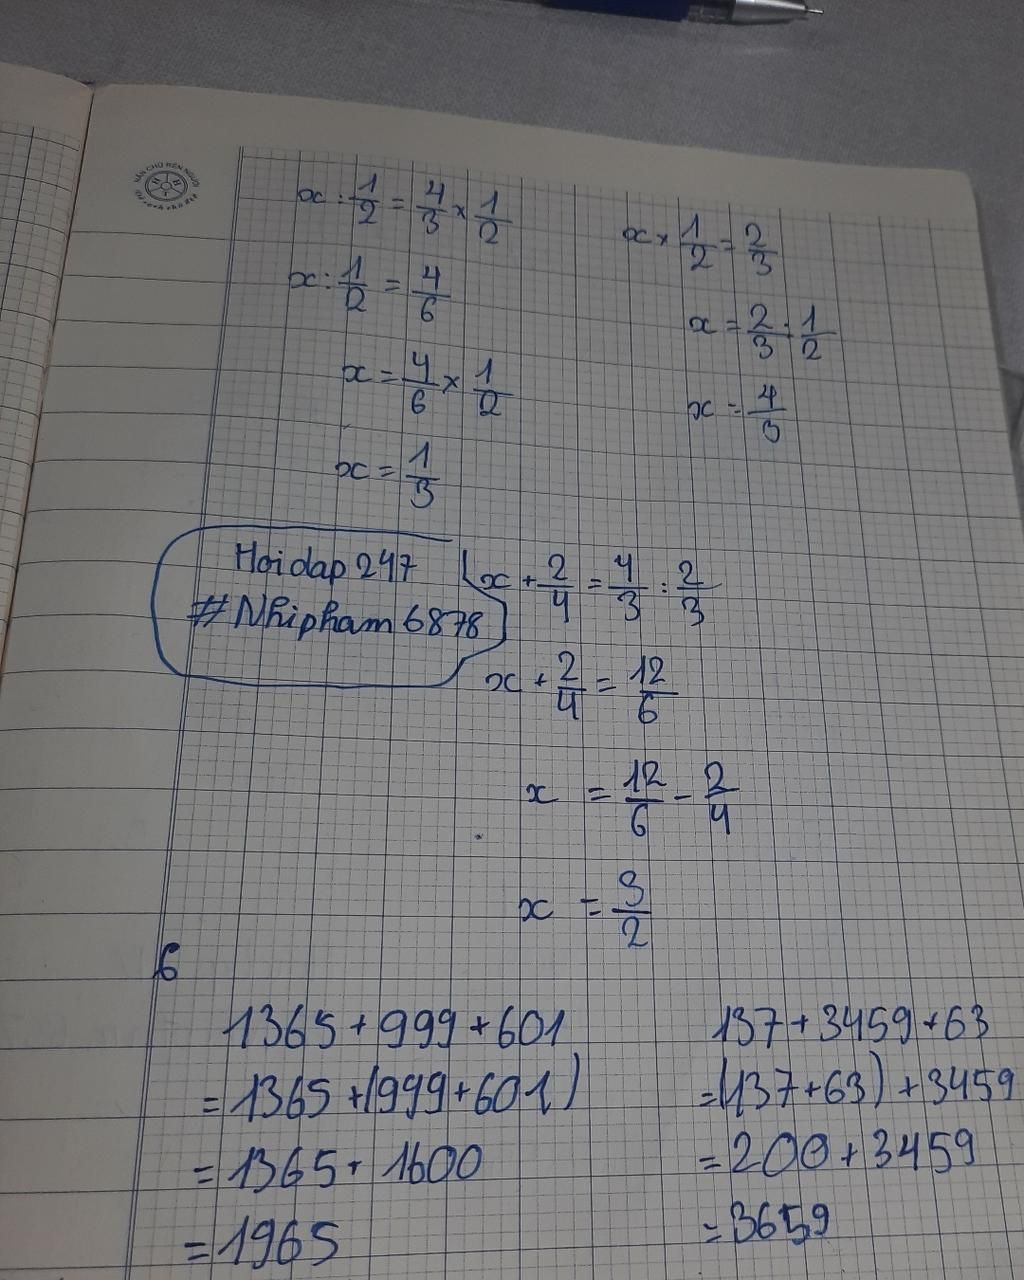 NẮN CHỮ RÈN NGƯỜI
x : 1/2 = 4/3 × 1/2
x : 1/2 = 4/6
x = 4/6 × 1/2
x = 1/3
x × 1/2 = 2/3
x = 2/3 : 1/2
x = 4/3
Hoidap 247
#Nhipham 6878
x + 2/4 = 4/3 : 2/3
x + 2/4 = 12/6
x = 12/6 - 2/4
x = 3/2
6
1365 + 999 + 601
= 1365 + (999 + 601)
= 1365 + 1600
= 1965
137 + 3459 + 63
= (137 + 63) + 3459
= 200 + 3459
= 3659